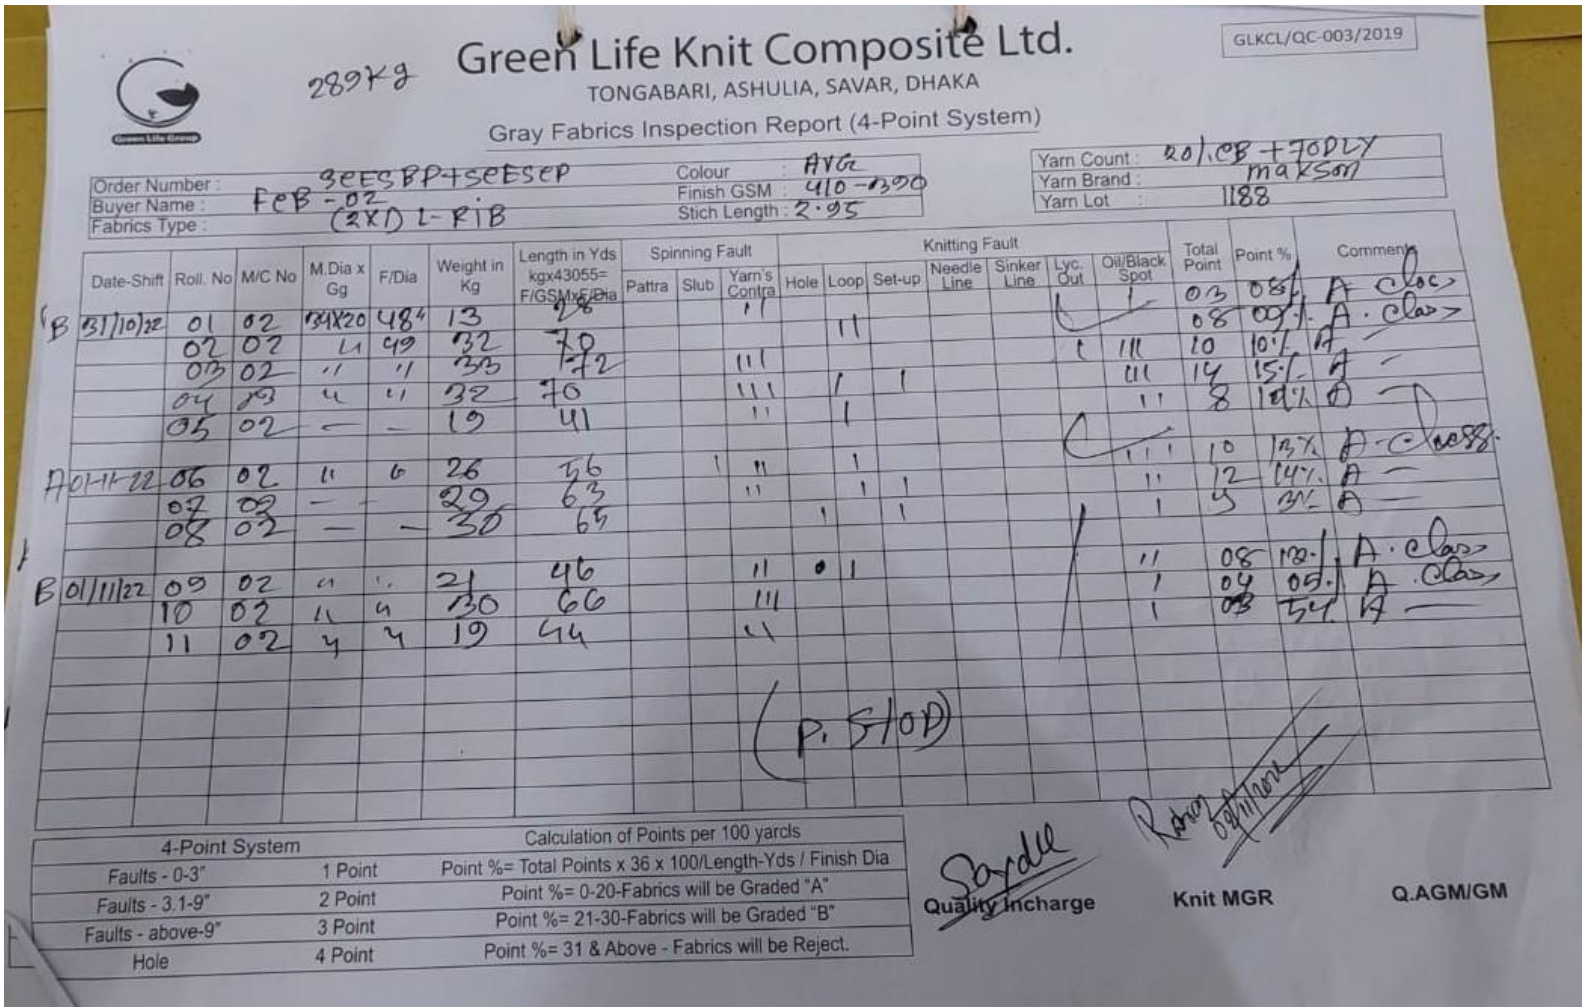 289 Kg
Green Life Knit Composite Ltd.
GLKCL/QC-003/2019
TONGABARI, ASHULIA, SAVAR, DHAKA
Gray Fabrics Inspection Report (4-Point System)
Green Life Group
Order Number :
Buyer Name : FCB - 02
Fabrics Type : (2X1) L-RIB
Colour : AVG
Finish GSM : 410-
Stich Length : 2.95
Yarn Count : 20/.CB + 70DLY
Yarn Brand : makson
Yarn Lot : 1188
Spinning Fault Knitting Fault
Date-Shift Roll. No M/C No M.Dia x Gg F/Dia Weight in Kg Length in Yds kgx43055= F/GSMxF/Dia Pattra Slub Yarn's Contra Hole Loop Set-up Needle Line Sinker Line Lyc. Out Oil/Black Spot Total Point Point % Comment
B 31/10/22 01 02 34X20 48" 13 28 11 03 08%
02 02 " 49 32 70 11 08 09% A. Class
03 02 " " 33 72 111 1 111 10 10% A —
04 " " 32 70 111 1 1 111 14 15% A —
05 02 — — 19 41 11 1 11 8 A —
A 01-11-22 06 02 " 26 56 1 11 1 111 10 13% A-
07 — — 29 63 11 1 1 11 12 14% A —
08 02 — — 30 65 1 1 1 3% A —
B 01/11/22 09 02 " " 21 46 11 1 11 08 A. Class
10 02 " " 30 66 111 1 04 05% A. Class
11 02 " " 19 44 11 1 03 5% A —
(P. STOP)
4-Point System Calculation of Points per 100 yards
Faults - 0-3" 1 Point Point %= Total Points x 36 x 100/Length-Yds / Finish Dia
Faults - 3.1-9" 2 Point Point %= 0-20-Fabrics will be Graded "A"
Faults - above-9" 3 Point Point %= 21-30-Fabrics will be Graded "B"
Hole 4 Point Point %= 31 & Above - Fabrics will be Reject.
Quality Incharge
Knit MGR
Q.AGM/GM